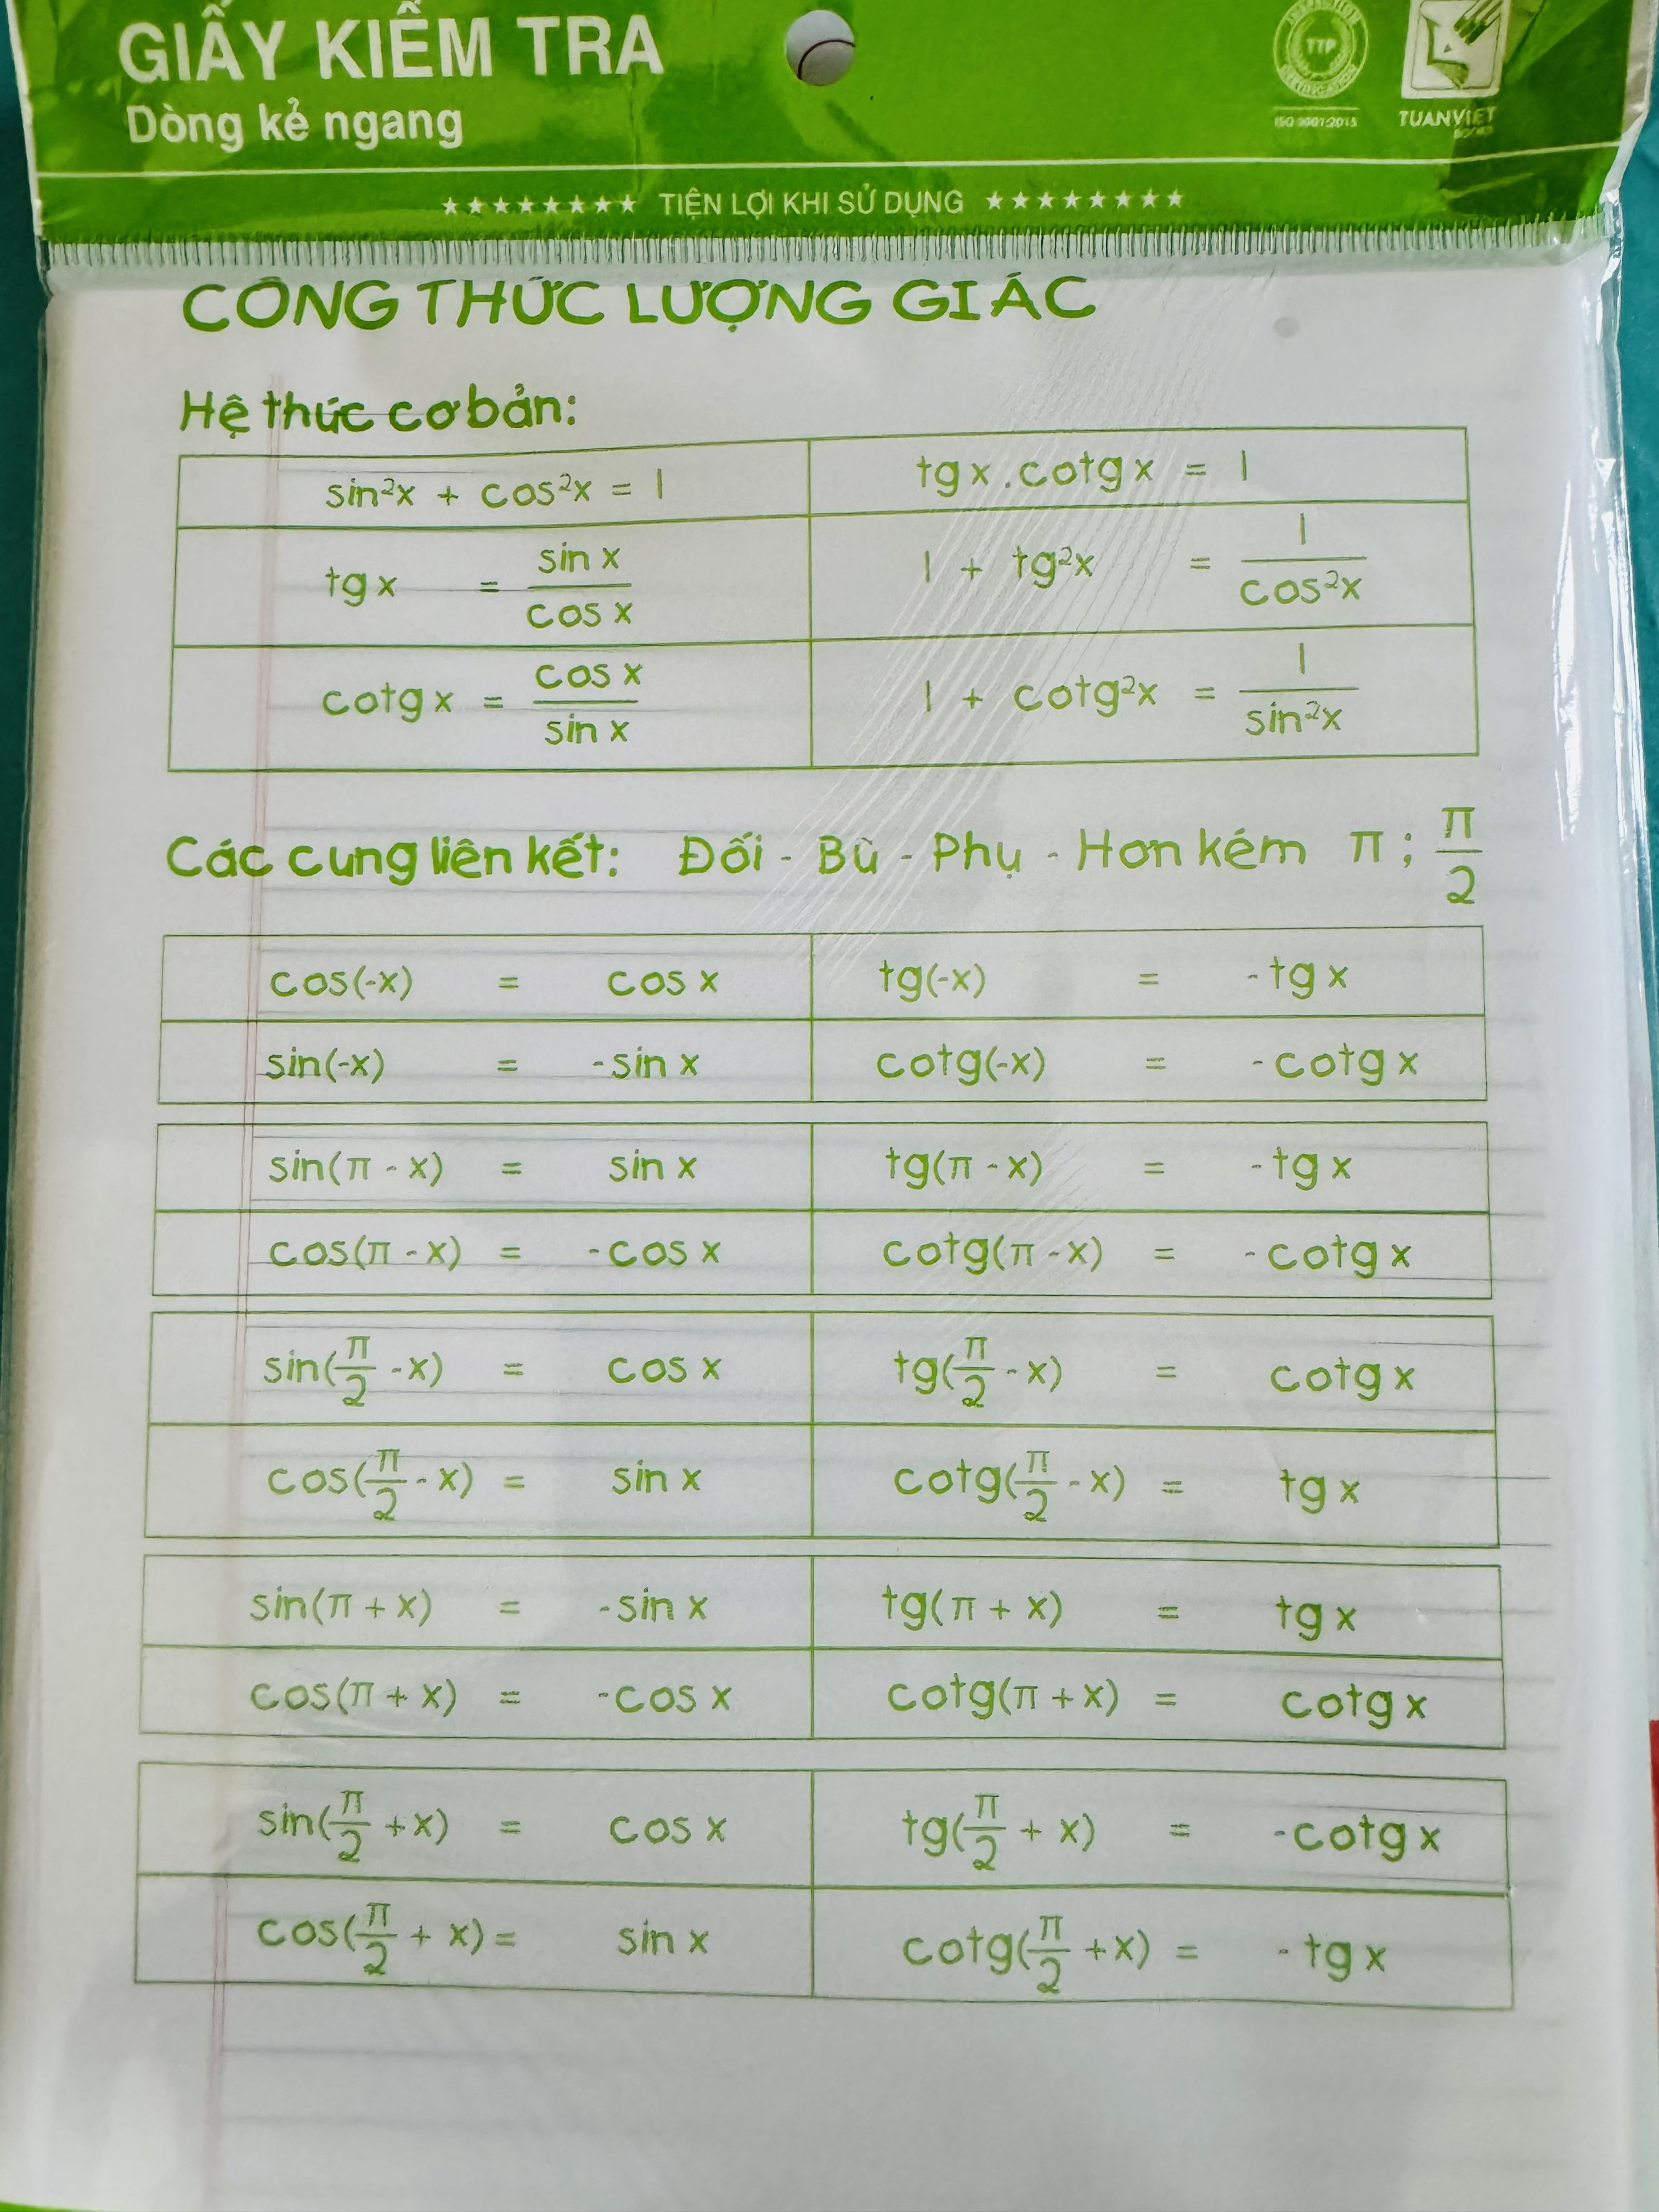 GIẤY KIỂM TRA
Dòng kẻ ngang
TTP
ISO 9001:2015
TUANVIET
★★★★★★★★ TIỆN LỢI KHI SỬ DỤNG ★★★★★★★★
CÔNG THỨC LƯỢNG GIÁC
Hệ thức cơ bản:
sin²x + cos²x = 1 tgx.cotgx = 1
tgx = sin x / cos x 1 + tg²x = 1 / cos²x
cotgx = cos x / sin x 1 + cotg²x = 1 / sin²x
Các cung liên kết: Đối - Bù - Phụ - Hơn kém π ; π/2
cos(-x) = cos x tg(-x) = -tg x
sin(-x) = -sin x cotg(-x) = -cotg x
sin(π - x) = sin x tg(π - x) = -tg x
cos(π - x) = -cos x cotg(π - x) = -cotg x
sin(π/2 - x) = cos x tg(π/2 - x) = cotg x
cos(π/2 - x) = sin x cotg(π/2 - x) = tg x
sin(π + x) = -sin x tg(π + x) = tg x
cos(π + x) = -cos x cotg(π + x) = cotg x
sin(π/2 + x) = cos x tg(π/2 + x) = -cotg x
cos(π/2 + x) = sin x cotg(π/2 + x) = -tg x